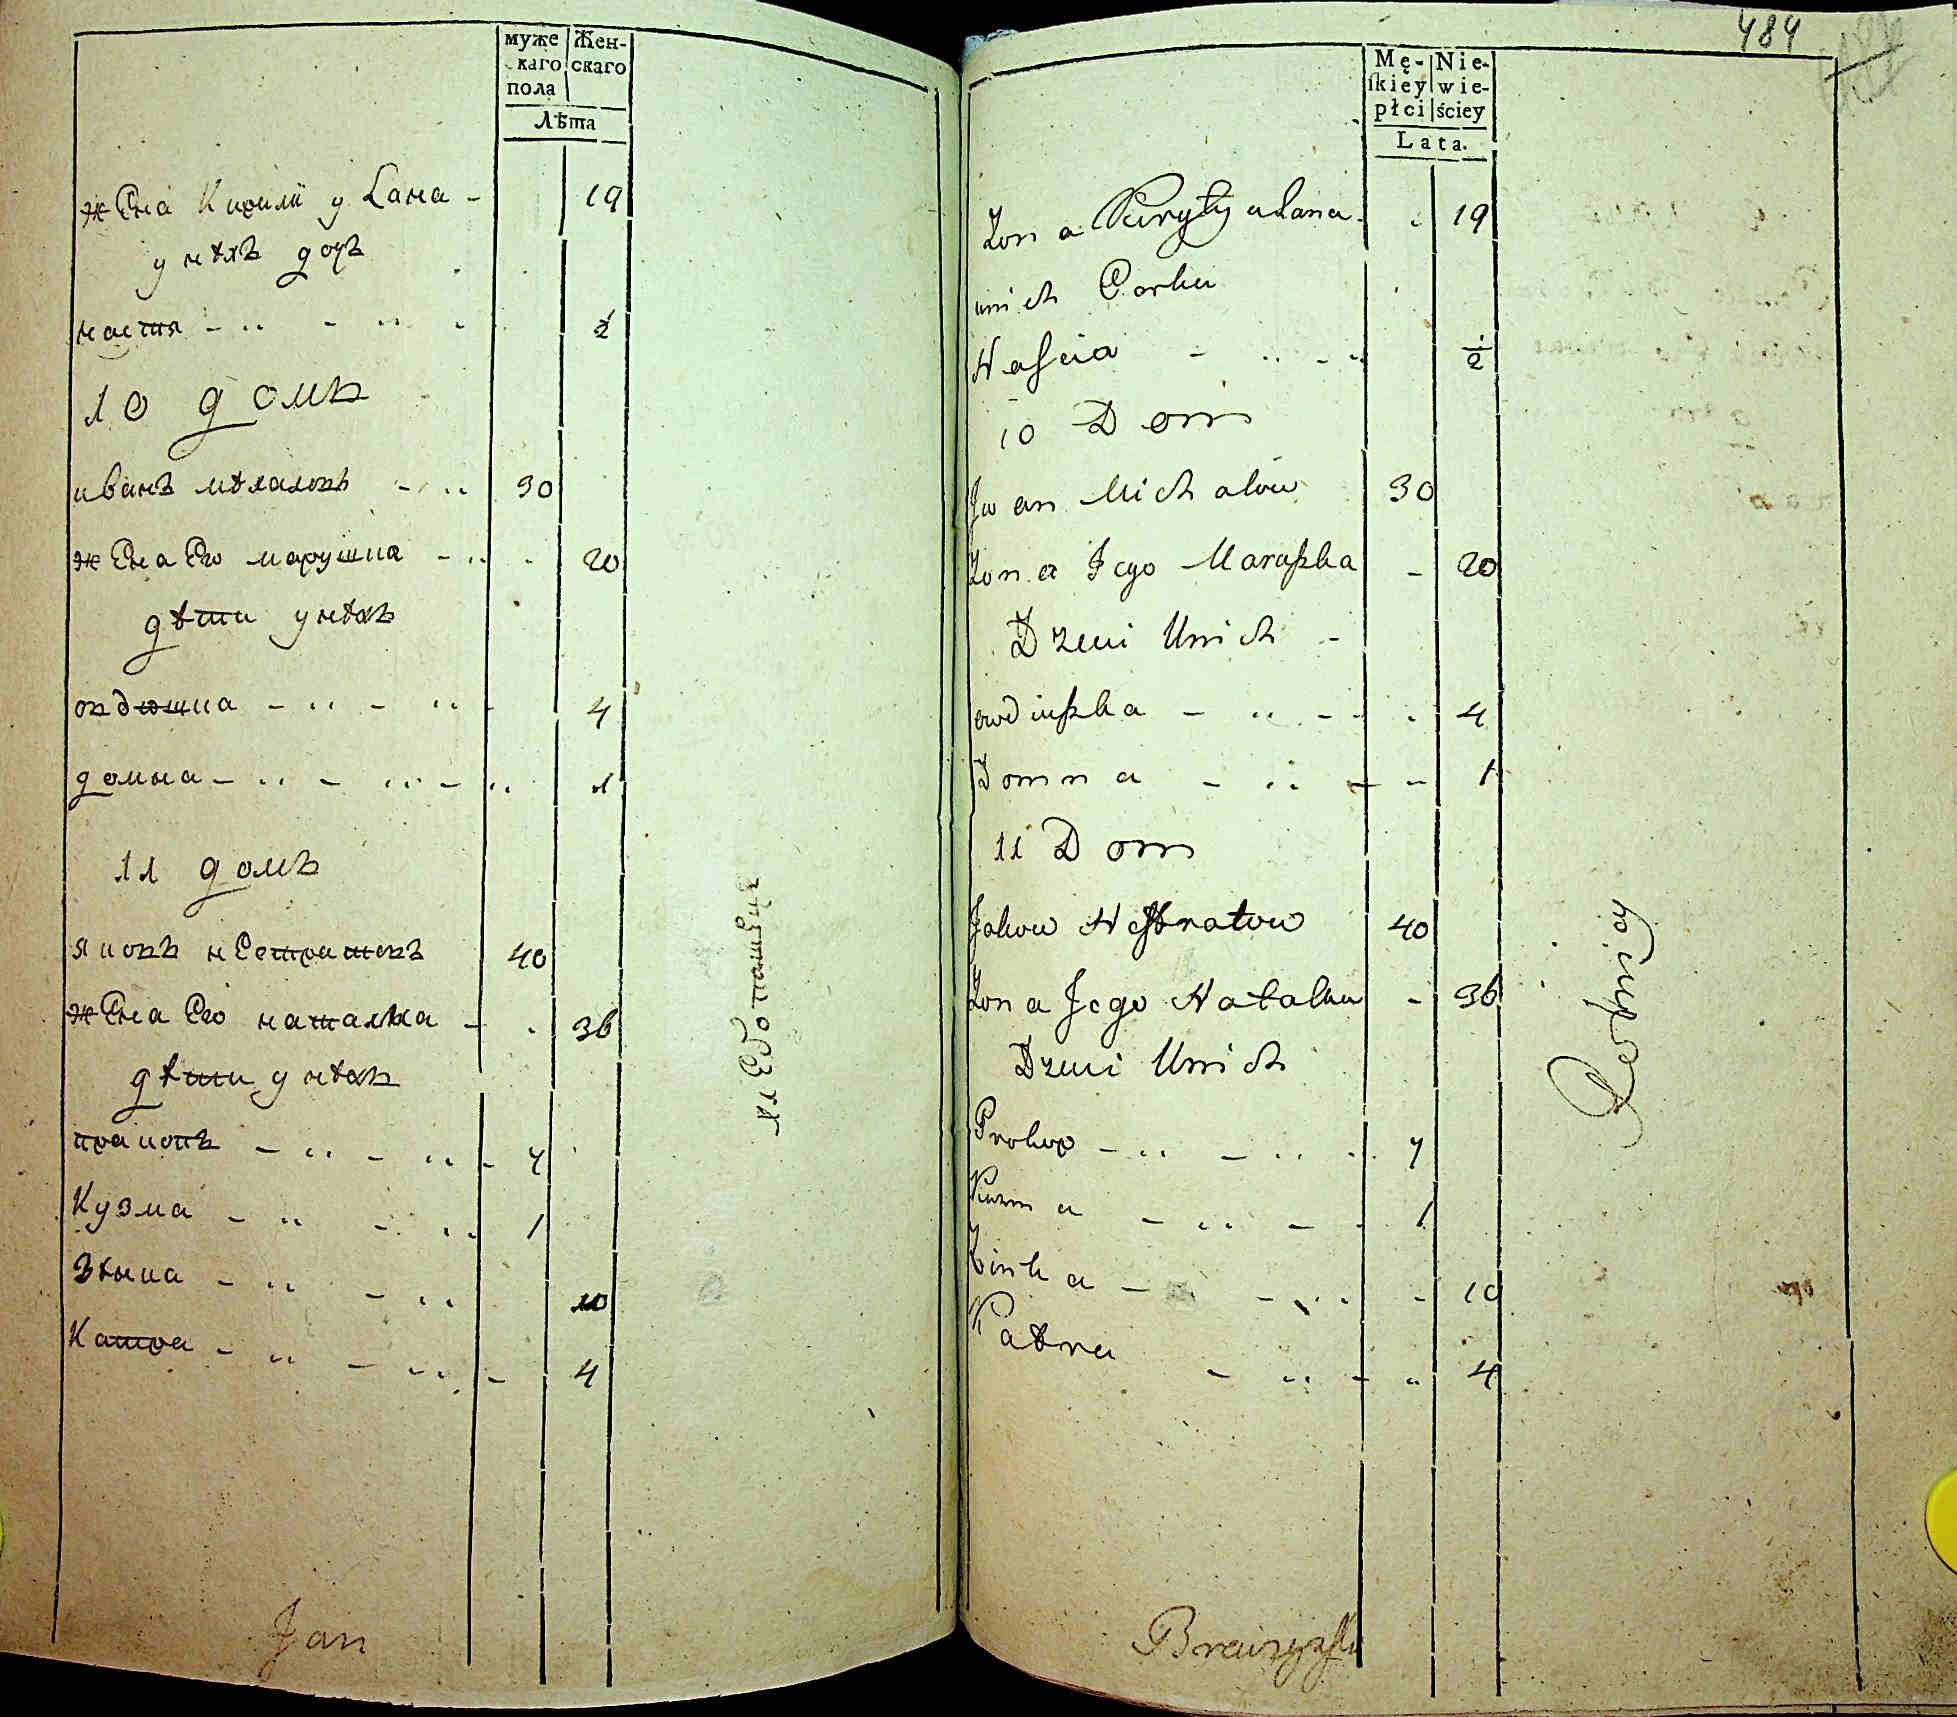 муже Жен-
каго скаго
пола
Лѣта
жена Кирилӣ улана - 19
у нѣхъ доч
настя - ½
10 домъ
иванъ мѣхаловъ - 30
жена его марушка - 20
дѣти у нѣхъ
овдюшка - 4
домна - 1
11 домъ
яковъ нестратовъ 40
жена его наталка - 36
дѣти у нѣхъ
пракопъ - 7
Кузма - 1
Зѣнка - 10
Катра - 4
Jan
484
Mę- Nie-
ſkiey wie-
płci ściey
Lata.
Zona Kiryły ulana 19
unich Corka
Naścia - ½
10 Dom
Jwan Michalow 30
Zona Jego Maraſzka - 20
Dzeci Unich -
owdiuſzka - 4
Domna - 1
11 Dom
Jakow Neſtratow 40
Zona Jego Natalka - 36
Dzeci Unich
Prokop - 7
Kuzma - 1
Zinka - 10
Katra - 4